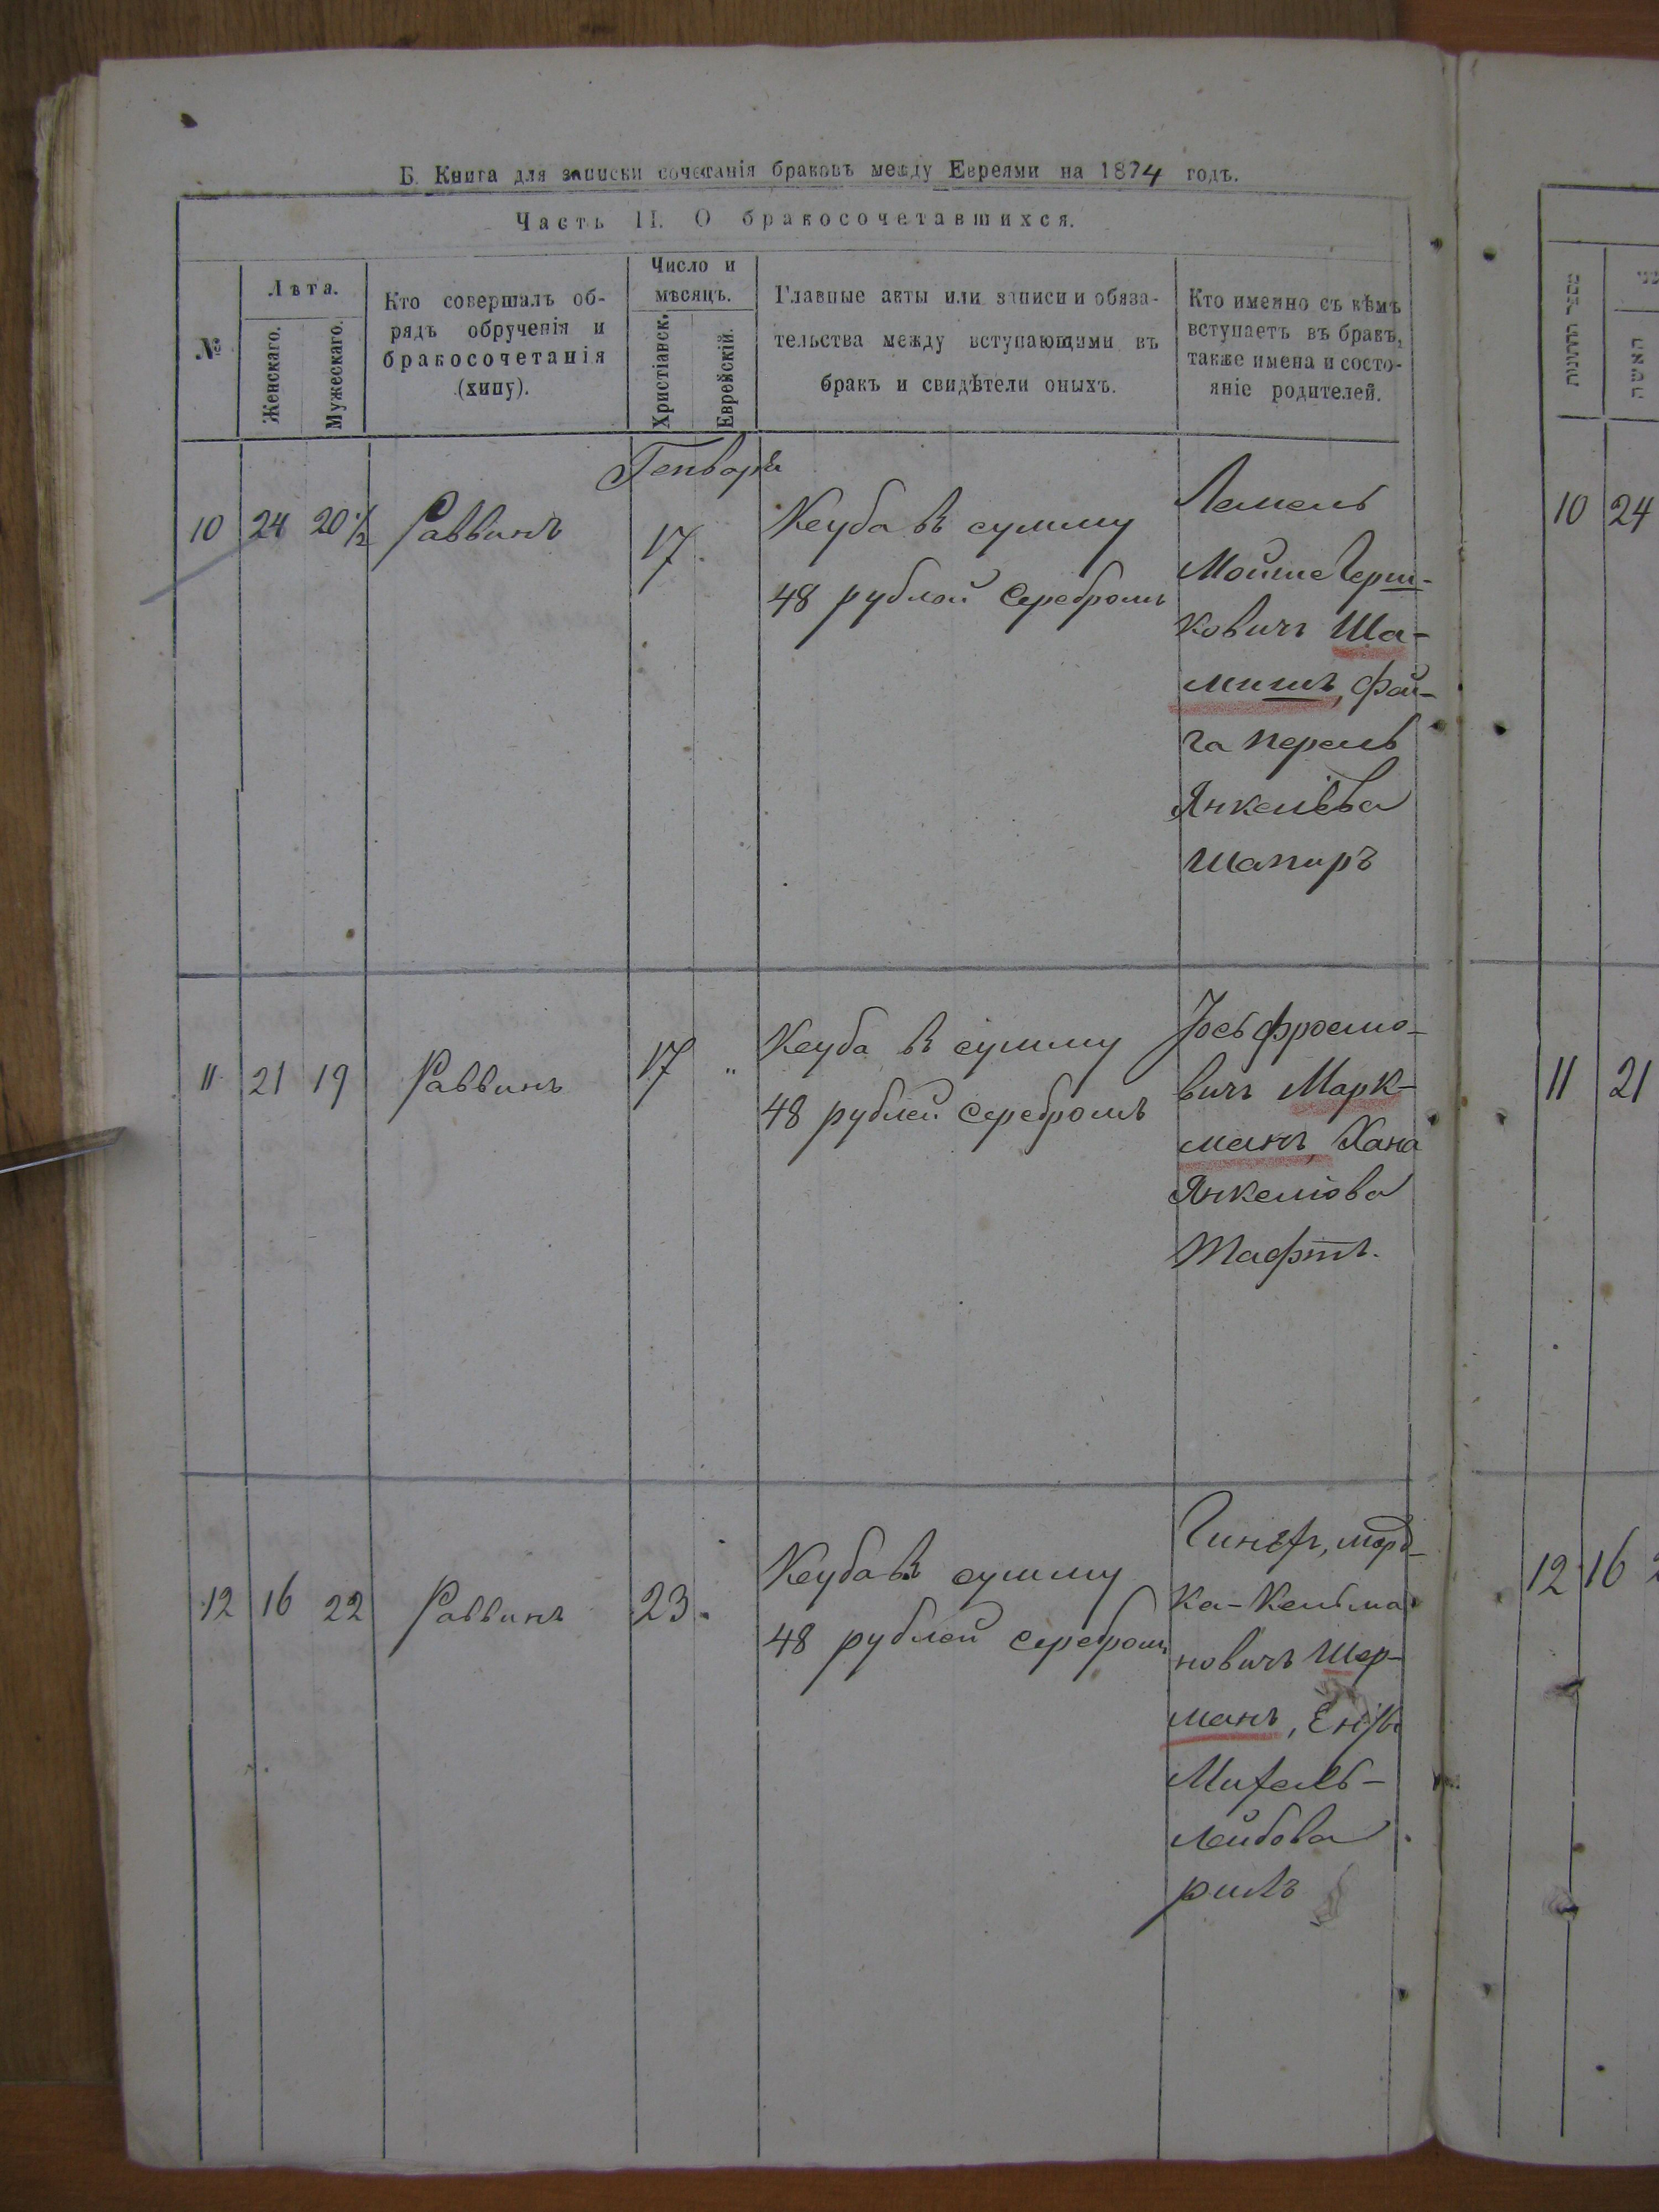 Б. Книга для записки сочетанія браковъ между Евреями на 1874 годъ.
Часть II. О бракосочетавшихся.
№
Лѣта.
Женскаго.
Мужескаго.
Кто совершалъ об-
рядъ обрученія и
бракосочетанія
(хипу).
Число и
мѣсяцъ.
Христіанск.
Еврейскій.
Главные акты или записи и обяза-
тельства между вступающими въ
бракъ и свидѣтели оныхъ.
Кто именно съ кѣмъ
вступаетъ въ бракъ,
также имена и состо-
яніе родителей.
Генваря
10 24 20 1/2 Раввинъ 17
Кеуба въ сумму
48 рублей серебромъ
Лемель
Мойше Герш-
ковичъ Ша-
мишъ, Фай-
га Перель
Янкелева
Шапиръ
11 21 19 Раввинъ 17 "
Кеуба въ сумму
48 рублей серебромъ
Іось Фроемо-
вичъ Марк-
манъ, Хана
Янкеліова
Тафтъ.
12 16 22 Раввинъ 23
Кеуба въ сумму
48 рублей серебромъ
Морд-
ка-Кельма-
новичъ Шер-
манъ,
Лейбова
10 24
11 21
12 16
מספר החתונות
האשה